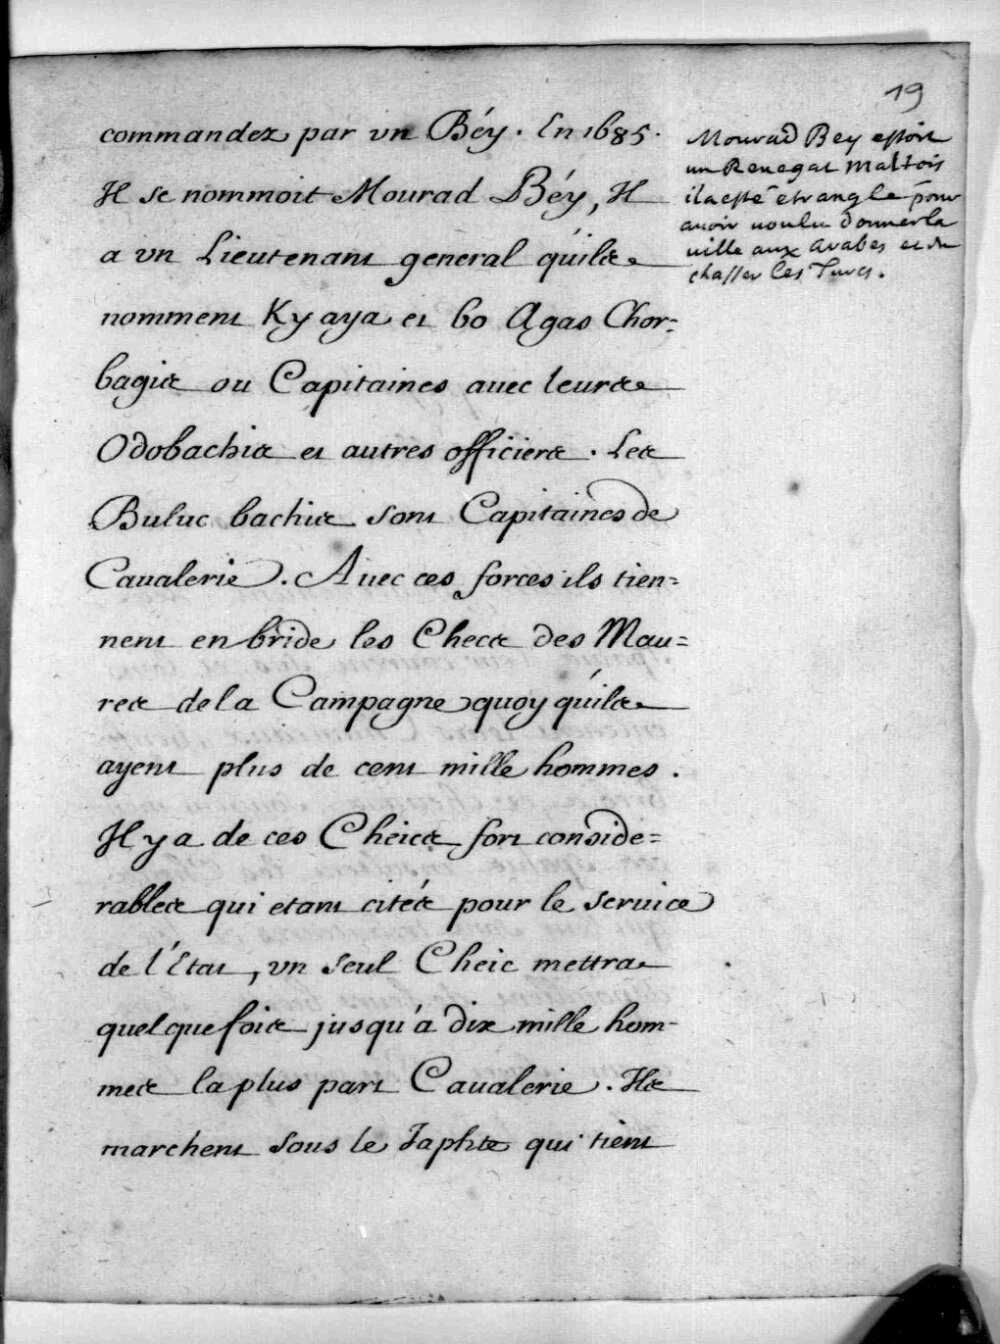 19
commandez par vn Béy. En 1685.
Il se nommoit Mourad Béy, Il
a vn Lieutenant general qu'ils
nomment Kyaya et 60 Agas Chor=
bagis ou Capitaines auec leurs
Odobachis et autres officiers. Les
Buluc bachis sont Capitaines de
Caualerie. Auec ces forces ils tien=
nent en bride les Checs des Mau=
res de la Campagne quoy qu'ils
ayent plus de cent mille hommes.
Il y a de ces Cheics fort conside=
rables qui etant cités pour le seruice
de l'Etat, vn seul Cheic mettra
quelquefois jusqu'a dix mille hom-
mes la plus part Caualerie. Ils
marchent sous le Taphte qui tient
Mourad Bey estoit
un Renegat maltois
il a esté étranglé pour
auoir uoulu donner la
uille aux arabes et en
chasser les Turcs.